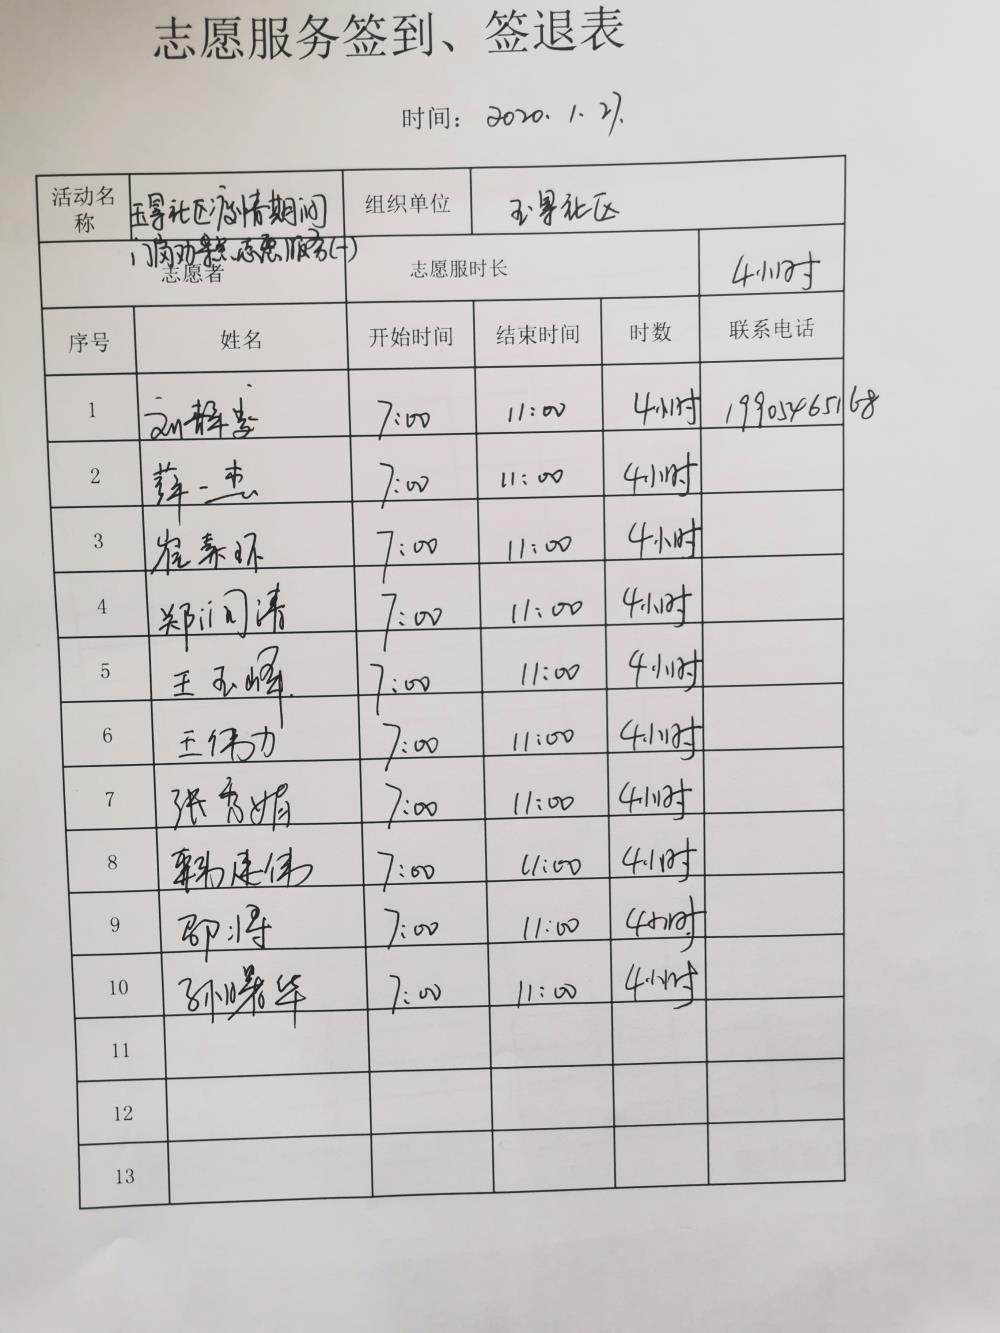 志愿服务签到、签退表
时间： 2020.1.27.
活动名称 玉景社区疫情期间 组织单位 玉景社区
门岗劝点志愿服务(一)
志愿者 志愿服时长 4小时
序号 姓名 开始时间 结束时间 时数 联系电话
1 刘 7:00 11:00 4小时 19905465168
2 薛一杰 7:00 11:00 4小时
3 崔素环 7:00 11:00 4小时
4 郑润清 7:00 11:00 4小时
5 王玉峰 7:00 11:00 4小时
6 王伟力 7:00 11:00 4小时
7 张秀娟 7:00 11:00 4小时
8 韩建伟 7:00 11:00 4小时
9 邵涛 7:00 11:00 4小时
10 孙曙华 7:00 11:00 4小时
11
12
13